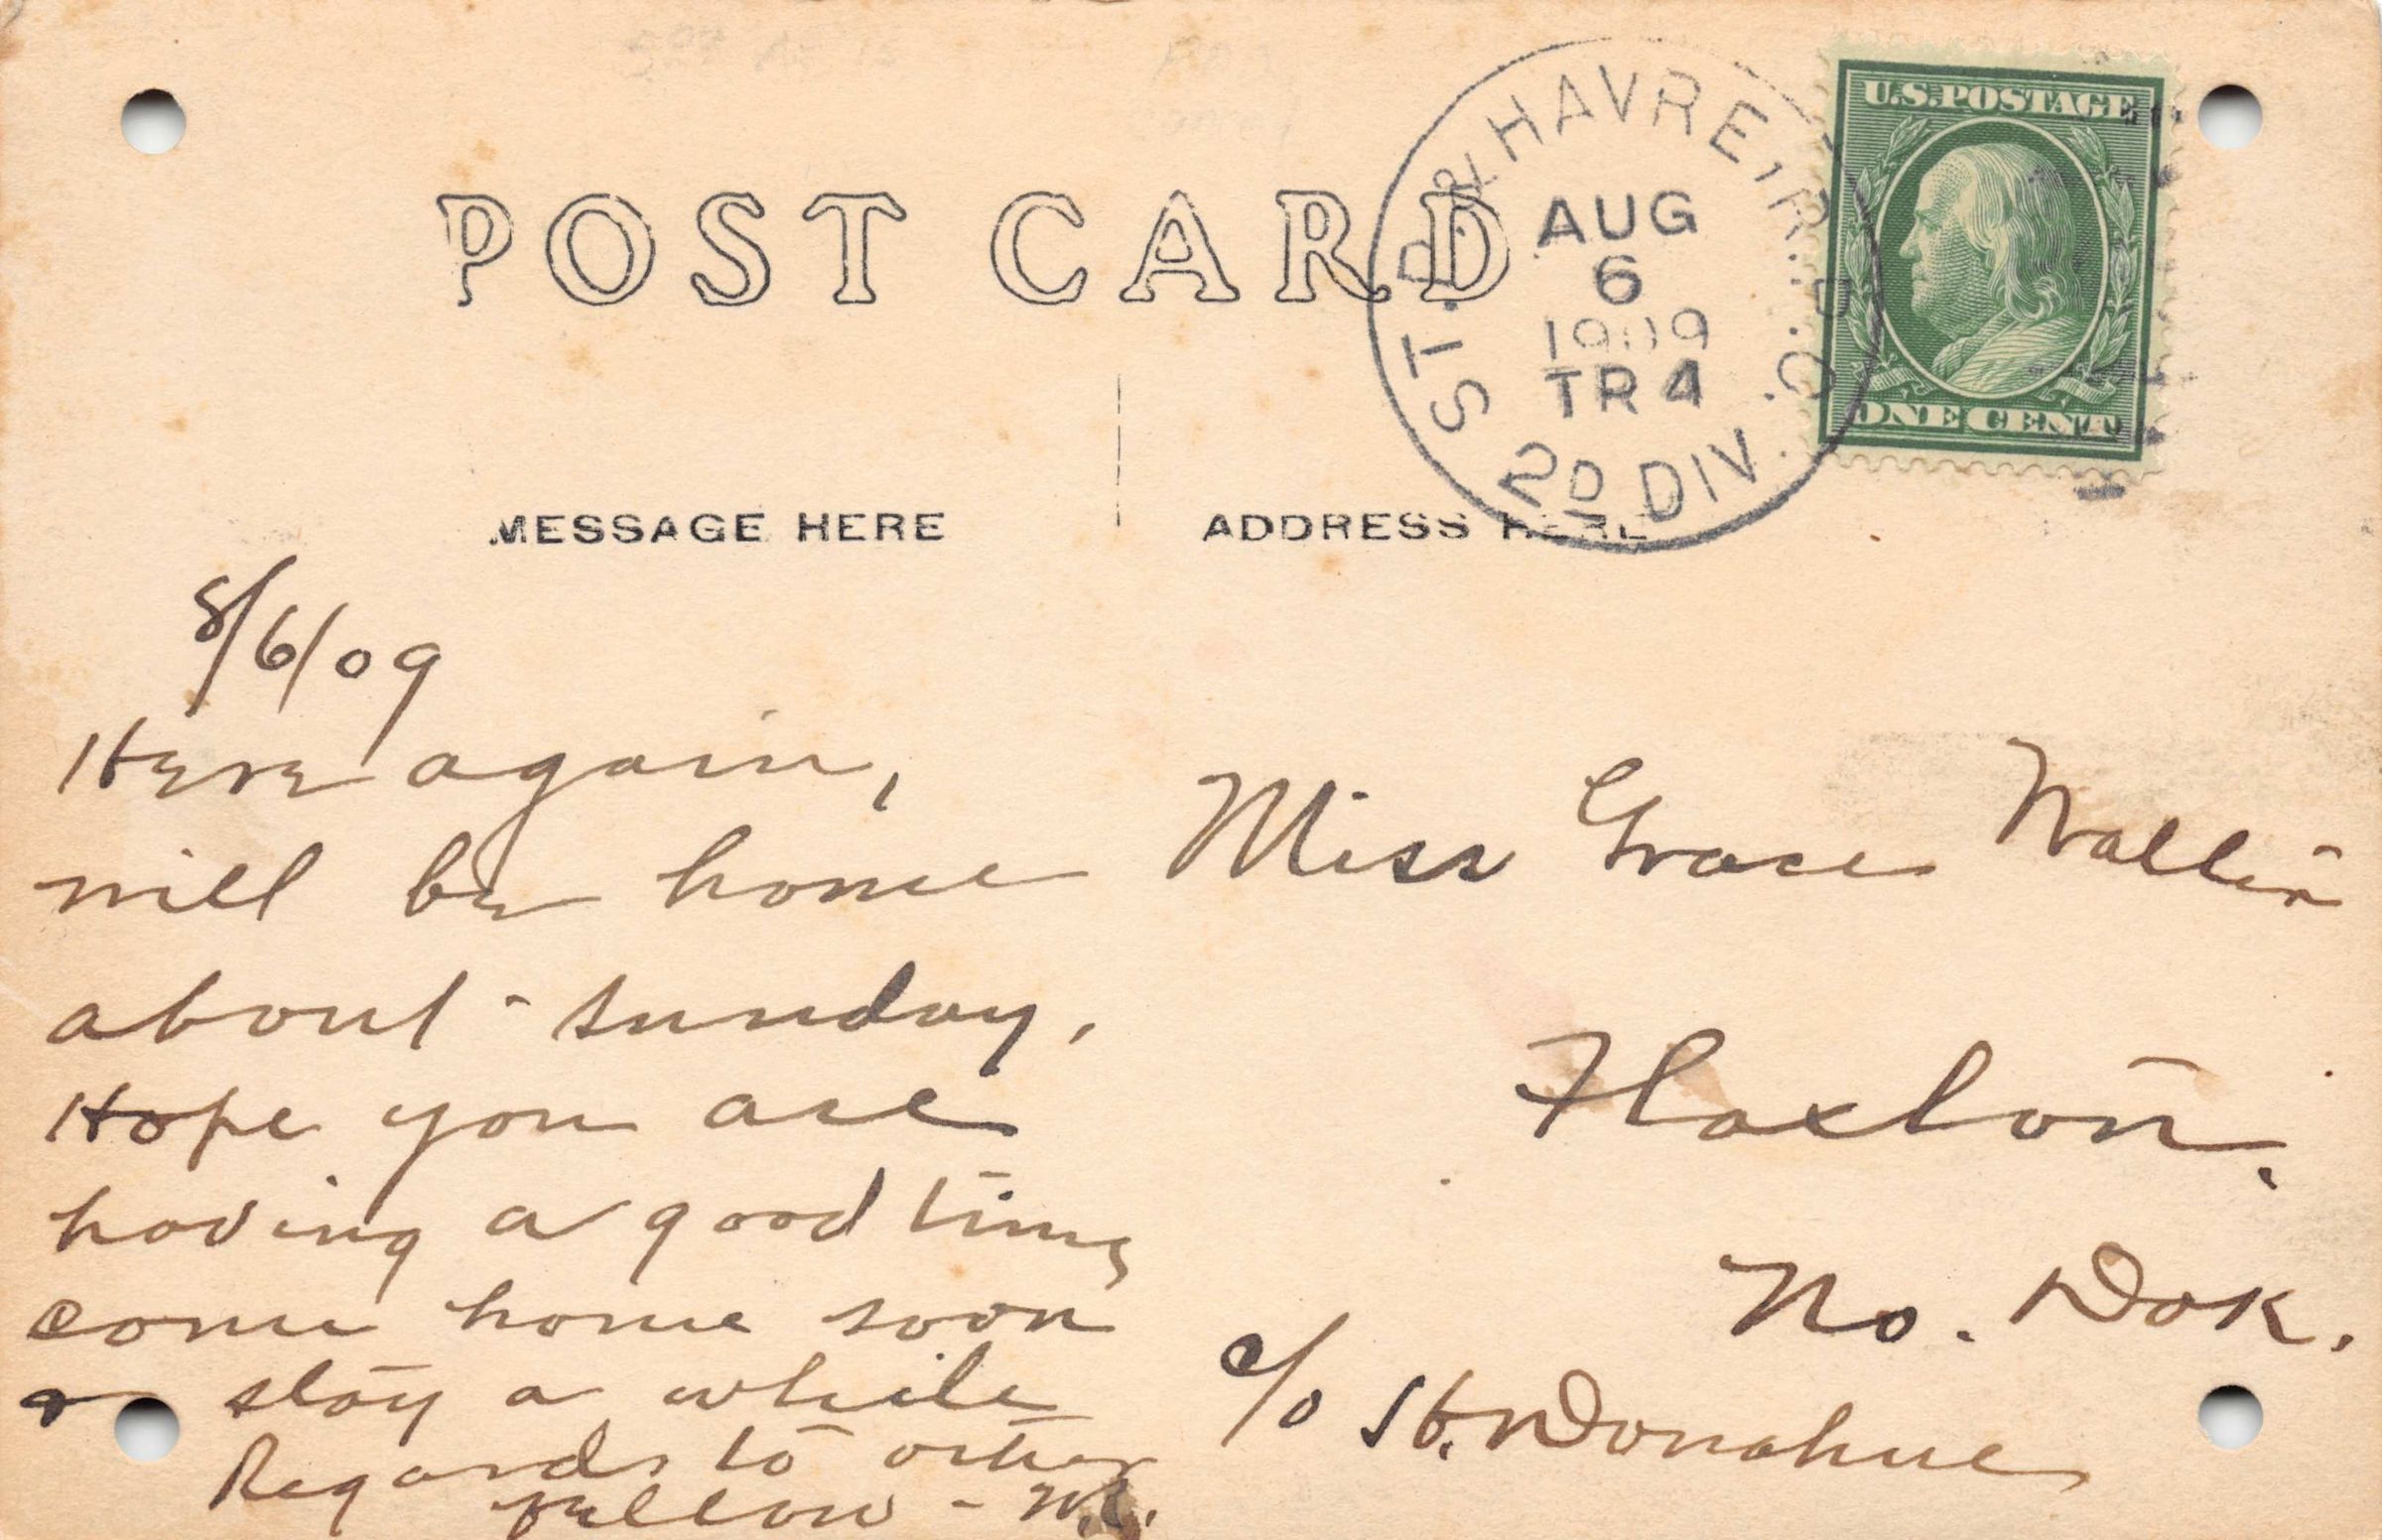 POST CARD
ST. P. & HAVRE, R.P.O.
AUG
6
1909
TR 4
2D DIV.
U.S. POSTAGE
ONE CENT
MESSAGE HERE
ADDRESS HERE
8/6/09
Here again,
will be home
about sunday,
Hope you are
having a good time
come home soon
stay a while
Regards to other
fellow -
Miss Grace Wallin
Flaxton,
No. Dak.
c/o H. Donahue